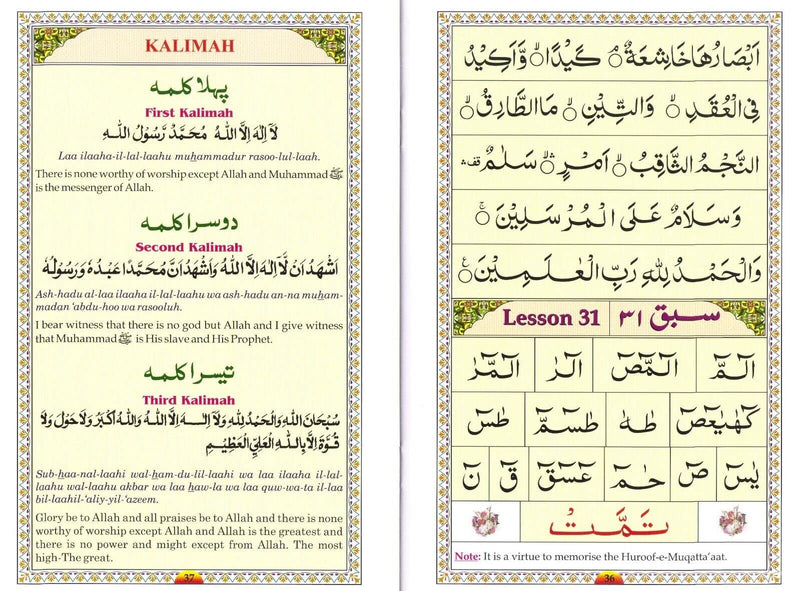 KALIMAH
پہلا کلمہ
First Kalimah
لَآ اِلٰهَ اِلَّا اللّٰهُ مُحَمَّدٌ رَّسُوْلُ اللّٰهِ
Laa ilaaha-il-lal-laahu muhammadur rasoo-lul-laah.
There is none worthy of worship except Allah and Muhammad ﷺ
is the messenger of Allah.
دوسرا کلمہ
Second Kalimah
اَشْهَدُ اَنْ لَّآ اِلٰهَ اِلَّا اللّٰهُ وَاَشْهَدُ اَنَّ مُحَمَّدًا عَبْدُهٗ وَرَسُوْلُهٗ
Ash-hadu al-laa ilaaha il-lal-laahu wa ash-hadu an-na muham-
madan 'abdu-hoo wa rasooluh.
I bear witness that there is no god but Allah and I give witness
that Muhammad ﷺ is His slave and His Prophet.
تیسرا کلمہ
Third Kalimah
سُبْحَانَ اللّٰهِ وَالْحَمْدُ لِلّٰهِ وَلَآ اِلٰهَ اِلَّا اللّٰهُ وَاللّٰهُ اَكْبَرُ وَلَا حَوْلَ وَلَا
قُوَّةَ اِلَّا بِاللّٰهِ الْعَلِيِّ الْعَظِيْمِ
Sub-haa-nal-laahi wal-ham-du-lil-laahi wa laa ilaaha il-lal-
laahu wal-laahu akbar wa laa haw-la wa laa quw-wa-ta il-laa
bil-laahil-'aliy-yil-'azeem.
Glory be to Allah and all praises be to Allah and there is none
worthy of worship except Allah and Allah is the greatest and
there is no power and might except from Allah. The most
high-The great.
37
اَبْصَارُهَا خَاشِعَةٌ ۘ كَيْدًا ۙ وَّاَكِيْدُ
فِي الْعُقَدِ ۙ وَالتِّيْنِ ۙ مَا الطَّارِقُ ۙ
النَّجْمُ الثَّاقِبُ ۙ اَمْرٍ ۙ سَلٰمٌ قف
وَسَلَامٌ عَلَى الْمُرْسَلِيْنَ ۚ
وَالْحَمْدُ لِلّٰهِ رَبِّ الْعٰلَمِيْنَ ع
Lesson 31 سبق ۳۱
الٓمّٓ الٓمّٓصٓ الٓرٰ الٓمّٓرٰ
كٓهٰيٰعٓصٓ طٰهٰ طٰسٓمّٓ طٰسٓ
يٰسٓ صٓ حٰمٓ عٓسٓقٓ قٓ نٓ
تَمَّتْ
Note: It is a virtue to memorise the Huroof-e-Muqatta'aat.
36